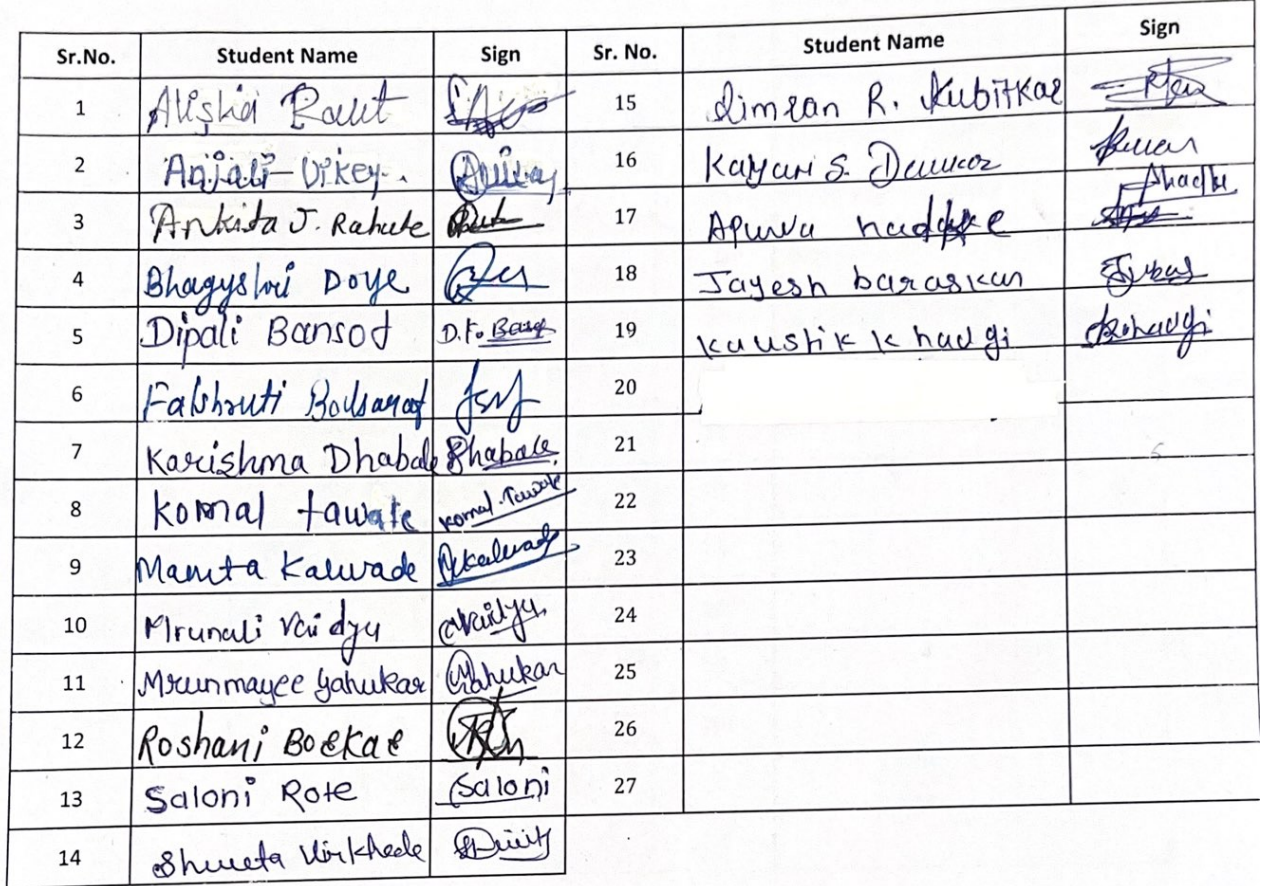 Sr.No. Student Name Sign Sr. No. Student Name Sign
1 Alisha Raut 15 Simran R. Kubitkar
2 Anjali Uikey. 16 Kayari S.
3 Ankita J. Rahute 17 Apurva
4 Bhagyshri Doye 18 Jayesh baraskar
5 Dipali Bansod D.F. Bans 19 kaustik khadgi Khadgi
6 20
7 Karishma Dhabale Dhabale. 21
8 Komal tawate Komal.Tawate 22
9 Mamta Kalwade Mkalwade 23
10 Mrunali Vaidya Vaidya. 24
11 Mrunmayee Gahukar Gahukar 25
12 Roshani Borkar 26
13 Saloni Rote Saloni 27
14 Shweta Virkhede